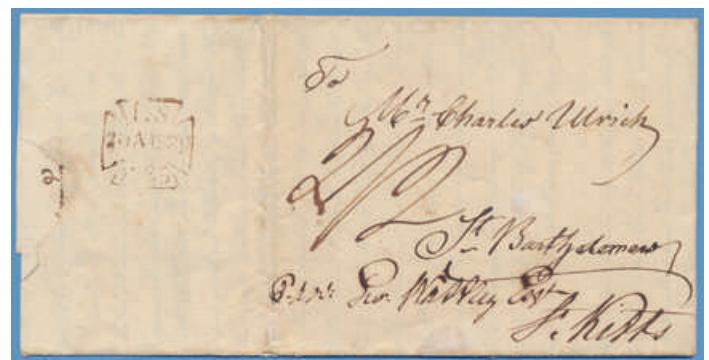 To
Mr Charles Ulrich
2/2
St Barthelemew
Geo. Wattley Esqr
St Kitts